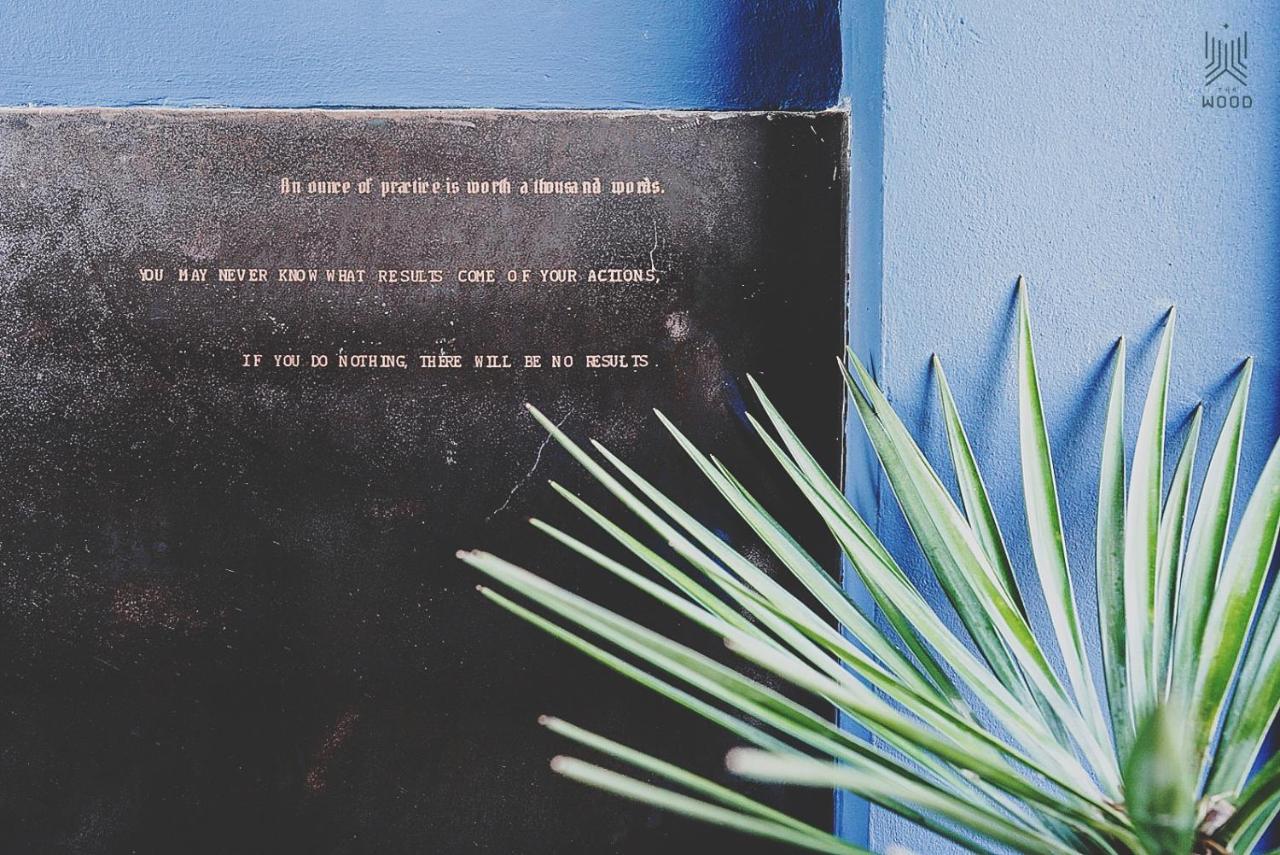 An ounce of practice is worth a thousand words.
YOU MAY NEVER KNOW WHAT RESULTS COME OF YOUR ACTIONS,
IF YOU DO NOTHING, THERE WILL BE NO RESULTS.
THE
WOOD